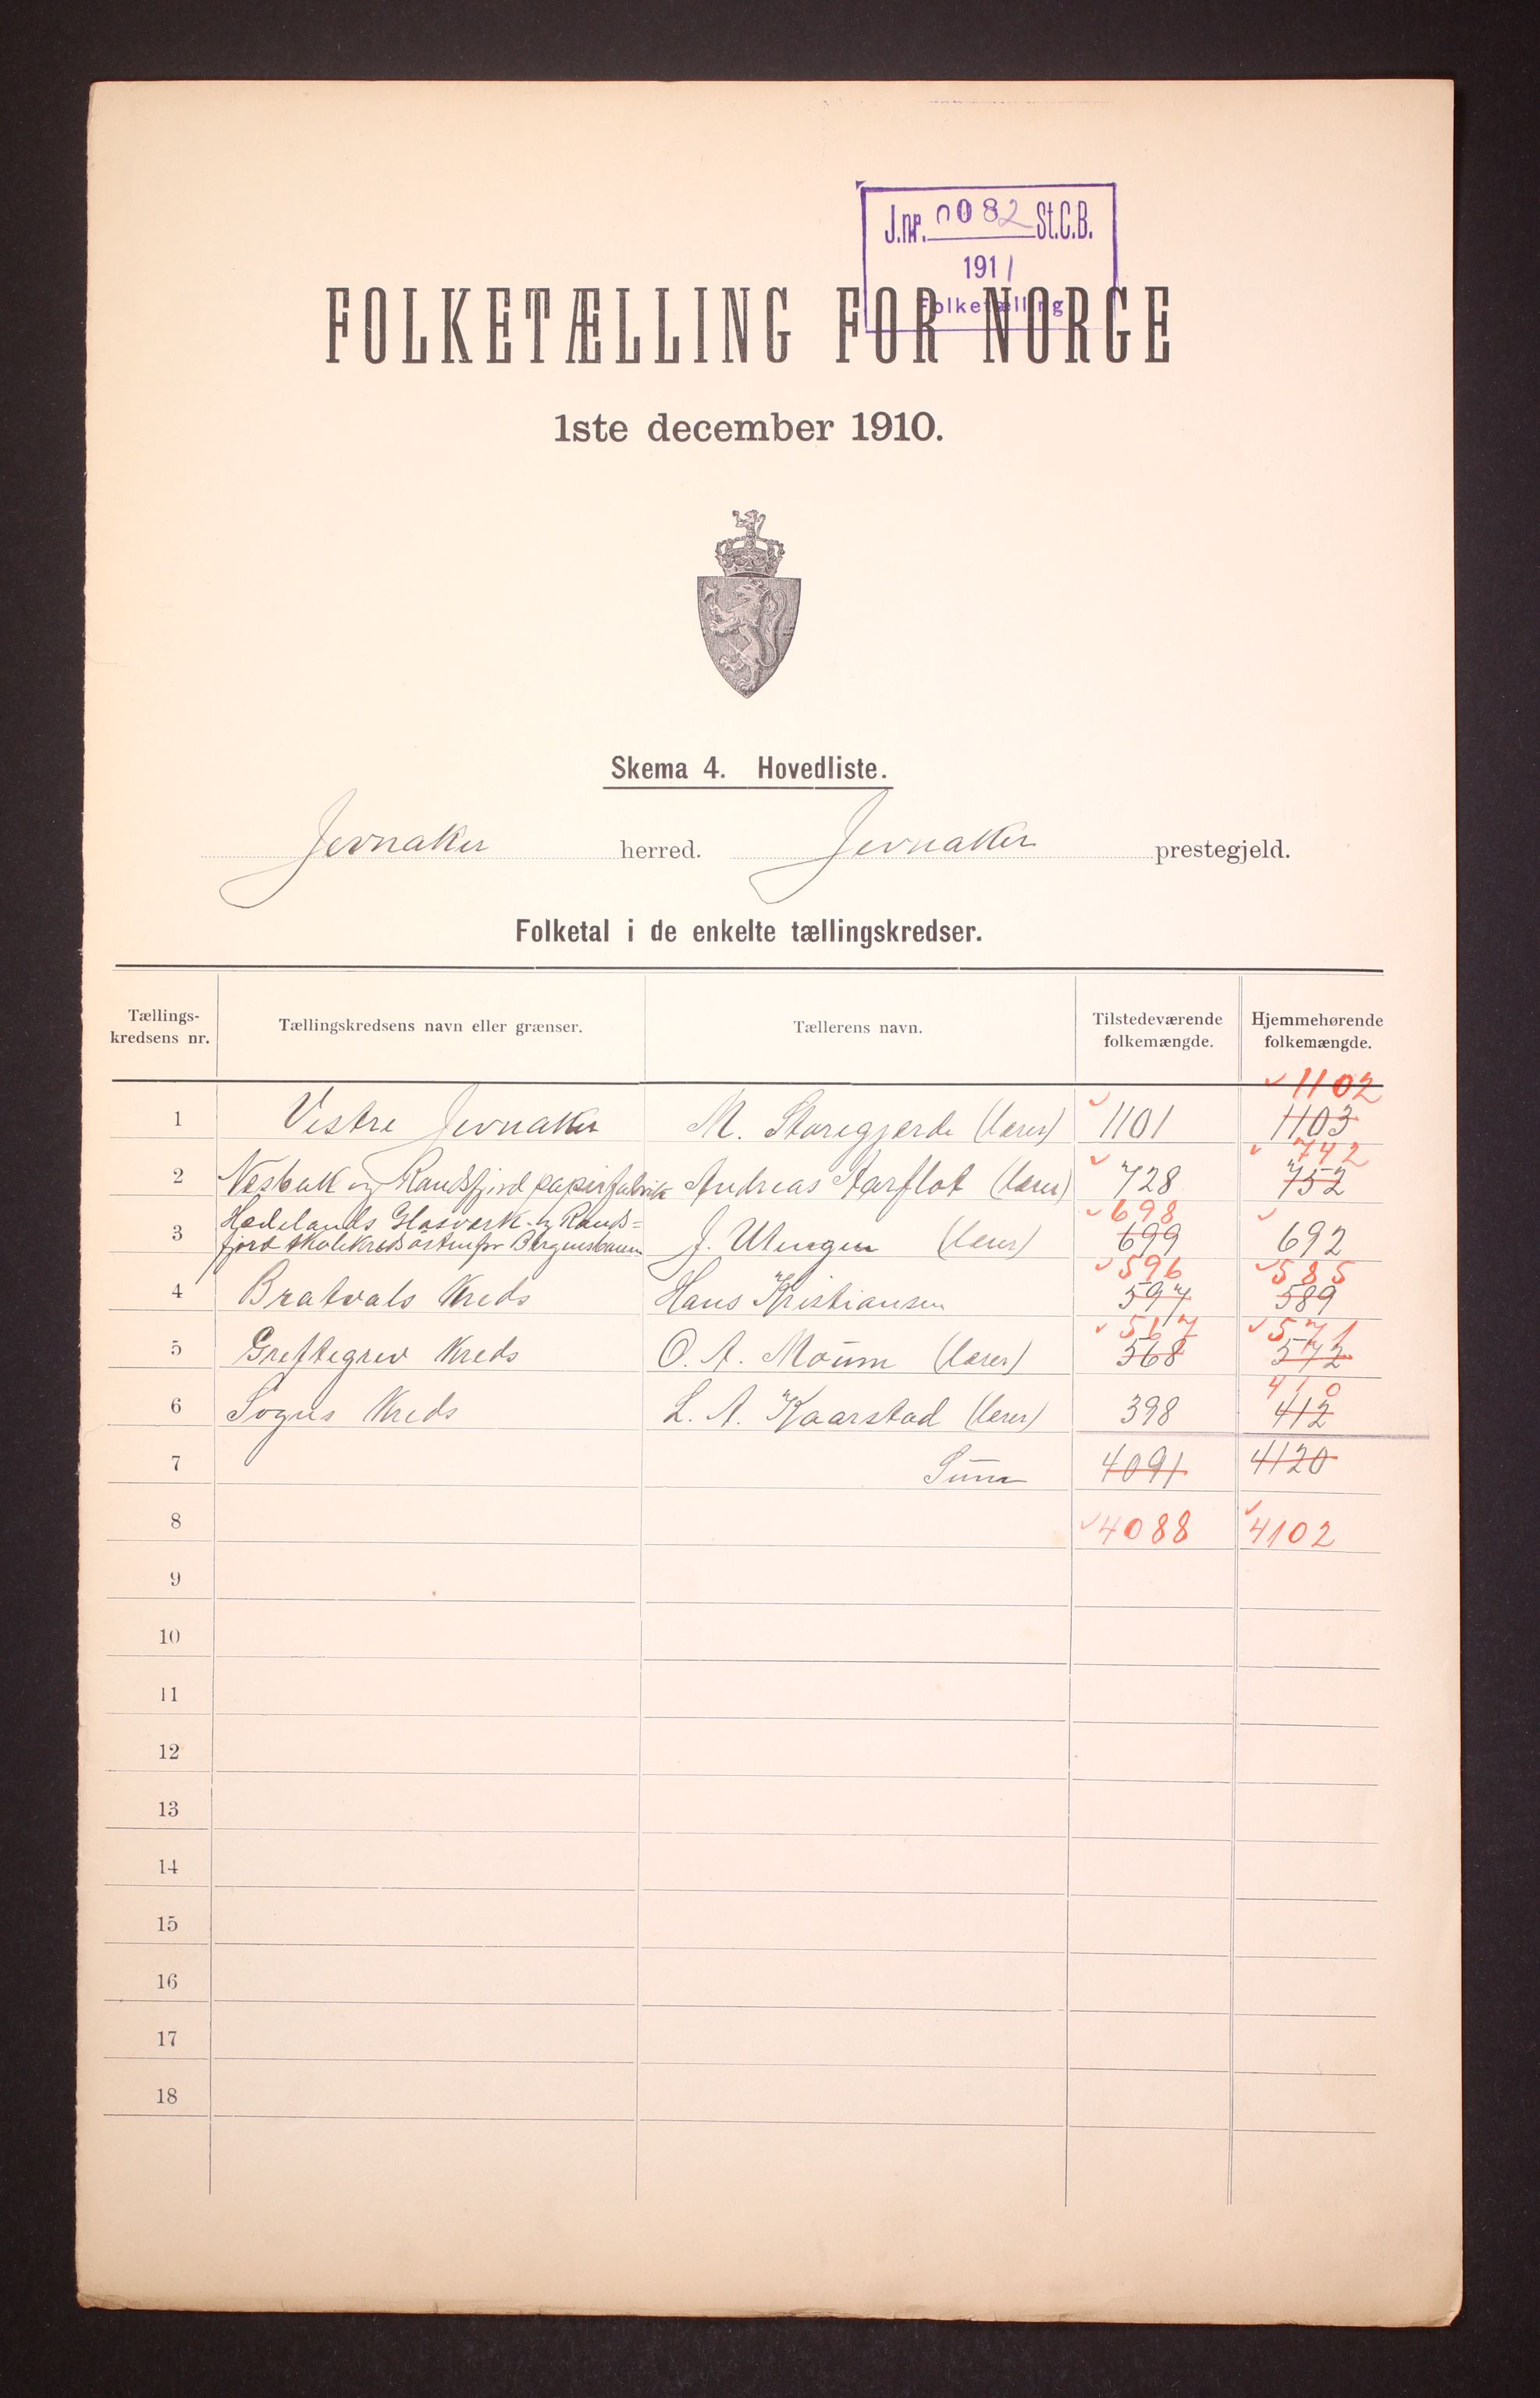 J.nr. 0082 St.C.B.
1911
Folketælling
FOLKETÆLLING FOR NORGE
1ste december 1910.
Skema 4. Hovedliste.
Jevnaker herred. Jevnaker prestegjeld.
Folketal i de enkelte tællingskredser.
Tællings-kredsens nr. Tællingskredsens navn eller grænser. Tællerens navn. Tilstedeværende folkemængde. Hjemmehørende folkemængde.
1102
1 Vestre Jevnaker M. Storegjerde (lærer) 1101 1103
742
2 Næsbak og Randsfjord papirfabrik Andreas Aarflot (lærer) 728 752
Hadelands Glasværk og Rands= 698
3 fjord skolekreds østenfor Bergensbanen J. (lærer) 699 692
596 585
4 Bratvals Kreds Hans Kristiansen 597 589
567 571
5 Greftegrev Kreds O. A. Moum (lærer) 568 572
410
6 Sogns Kreds L. A. Kaarstad (lærer) 398 412
7 Sum 4091 4120
8 4088 4102
9
10
11
12
13
14
15
16
17
18